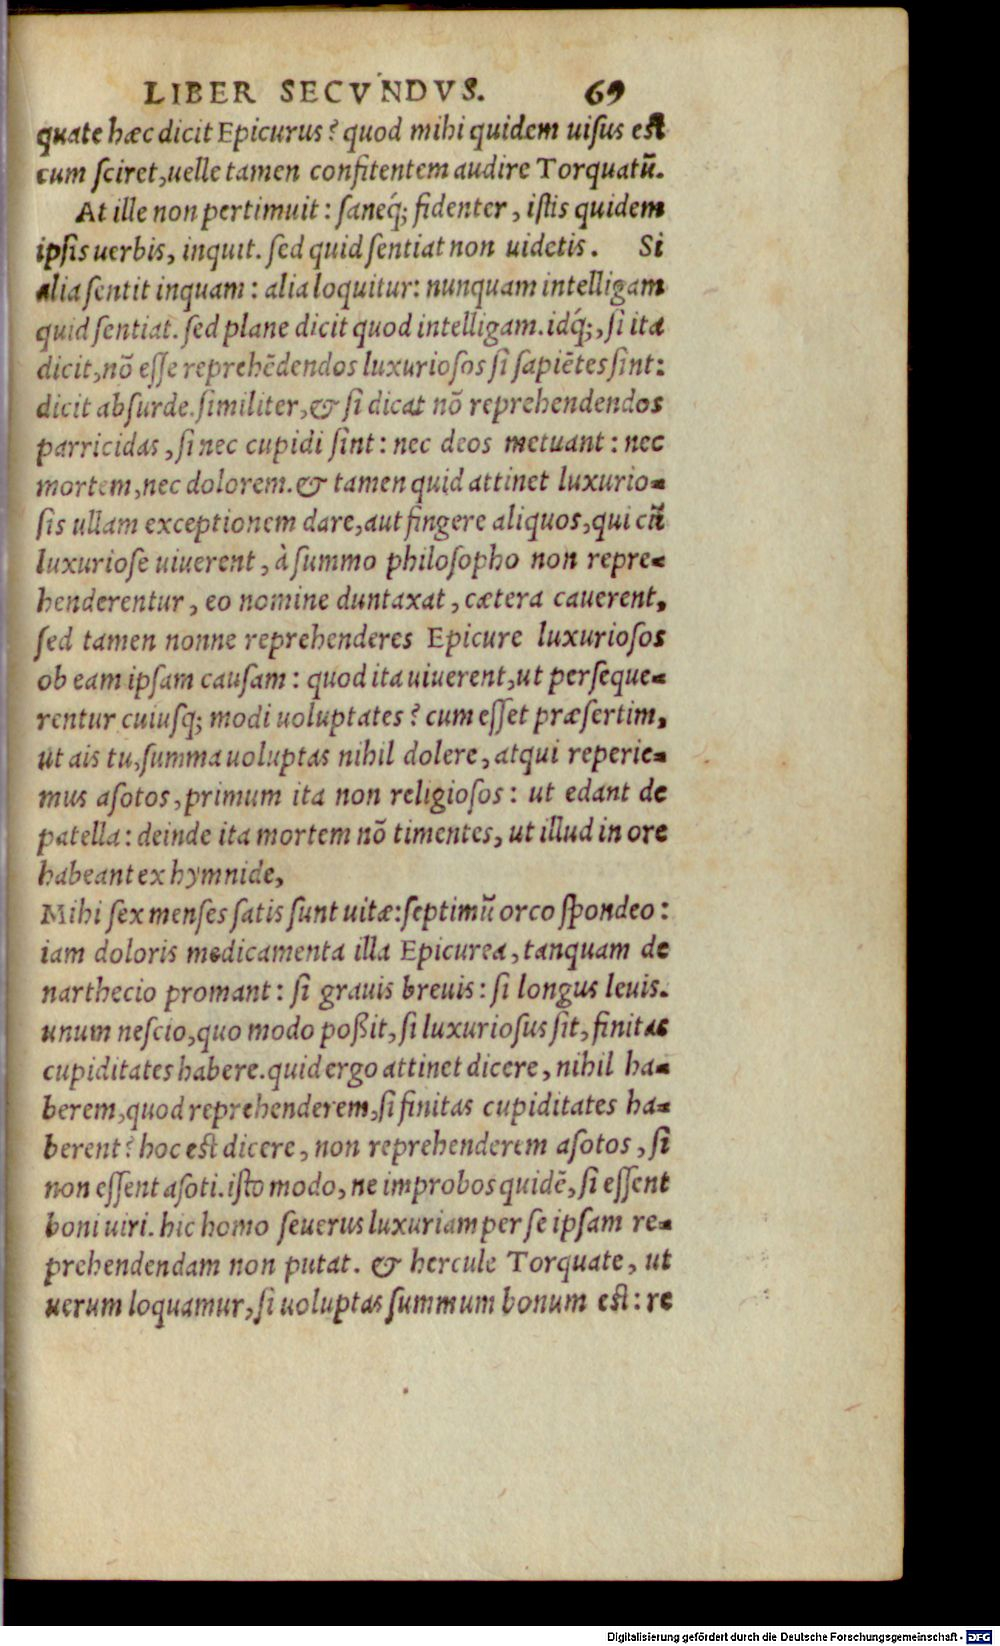 LIBER SECVNDVS. 69
quate hæc dicit Epicurus? quod mihi quidem uisus est
cum sciret, uelle tamen confitentem audire Torquatū.
At ille non pertimuit: saneq́; fidenter, istis quidem
ipsis uerbis, inquit. sed quid sentiat non uidetis. Si
alia sentit inquam: alia loquitur: nunquam intelligam
quid sentiat. sed plane dicit quod intelligam. idq́;, si ita
dicit, nō esse reprehēdendos luxuriosos si sapiētes sint:
dicit absurde. similiter, & si dicat nō reprehendendos
parricidas, si nec cupidi sint: nec deos metuant: nec
mortem, nec dolorem. & tamen quid attinet luxurio-
sis ullam exceptionem dare, aut fingere aliquos, qui cū
luxuriose uiuerent, à summo philosopho non repre-
henderentur, eo nomine duntaxat, cætera cauerent,
sed tamen nonne reprehenderes Epicure luxuriosos
ob eam ipsam causam: quod ita uiuerent, ut perseque-
rentur cuiusq; modi uoluptates? cum esset præsertim,
ut ais tu, summa uoluptas nihil dolere, atqui reperie-
mus asotos, primum ita non religiosos: ut edant de
patella: deinde ita mortem nō timentes, ut illud in ore
habeant ex hymnide,
Mihi sex menses satis sunt uitæ: septimū orco spondeo:
iam doloris medicamenta illa Epicurea, tanquam de
narthecio promant: si grauis breuis: si longus leuis.
unum nescio, quo modo poßit, si luxuriosus sit, finitas
cupiditates habere. quid ergo attinet dicere, nihil ha-
berem, quod reprehenderem, si finitas cupiditates ha-
berent? hoc est dicere, non reprehenderem asotos, si
non essent asoti. isto modo, ne improbos quidē, si essent
boni uiri. hic homo seuerus luxuriam per se ipsam re-
prehendendam non putat. & hercule Torquate, ut
uerum loquamur, si uoluptas summum bonum est: re
Digitalisierung gefördert durch die Deutsche Forschungsgemeinschaft - DFG